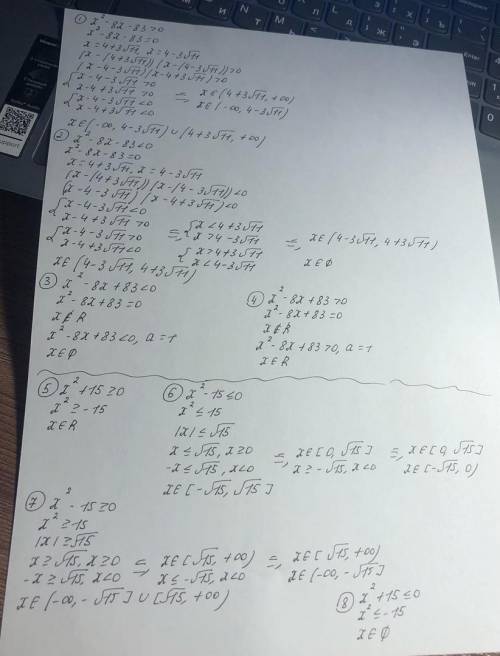 ① x² - 8x - 83 > 0
x² - 8x - 83 = 0
x = 4+3√11, x = 4-3√11
(x-(4+3√11))(x-(4-3√11))>0
(x-4-3√11)(x-4+3√11)>0
{x-4-3√11>0
x-4+3√11>0
{x-4-3√11<0
x-4+3√11<0
=, x∈(4+3√11, +∞)
x∈(-∞, 4-3√11)
x∈(-∞, 4-3√11)∪(4+3√11, +∞)
② x² - 8x - 83 < 0
x² - 8x - 83 = 0
x = 4+3√11, x = 4-3√11
(x-(4+3√11))(x-(4-3√11))<0
(x-4-3√11)(x-4+3√11)<0
{x-4-3√11<0
x-4+3√11>0
{x-4-3√11>0
x-4+3√11<0
=, {x<4+3√11
x>4-3√11
{x>4+3√11
x<4-3√11
=, x∈(4-3√11, 4+3√11)
x∈Ø
x∈(4-3√11, 4+3√11)
③ x² - 8x + 83 < 0
x² - 8x + 83 = 0
x∉R
x² - 8x + 83 < 0, a = 1
x∈Ø
④ x² - 8x + 83 > 0
x² - 8x + 83 = 0
x∉R
x² - 8x + 83 > 0, a = 1
x∈R
⑤ x² + 15 ≥ 0
x² ≥ -15
x∈R
⑥ x² - 15 ≤ 0
x² ≤ 15
|x| ≤ √15
x ≤ √15, x ≥ 0
-x ≤ √15, x < 0
=, x∈[0, √15]
x ≥ -√15, x < 0
=, x∈[0, √15]
x∈[-√15, 0)
x∈[-√15, √15]
⑦ x² - 15 ≥ 0
x² ≥ 15
|x| ≥ √15
x ≥ √15, x ≥ 0
-x ≥ √15, x < 0
=, x∈[√15, +∞)
x ≤ -√15, x < 0
=, x∈[√15, +∞)
x∈(-∞, -√15]
x∈(-∞, -√15]∪[√15, +∞)
⑧ x² + 15 ≤ 0
x² ≤ -15
x∈Ø